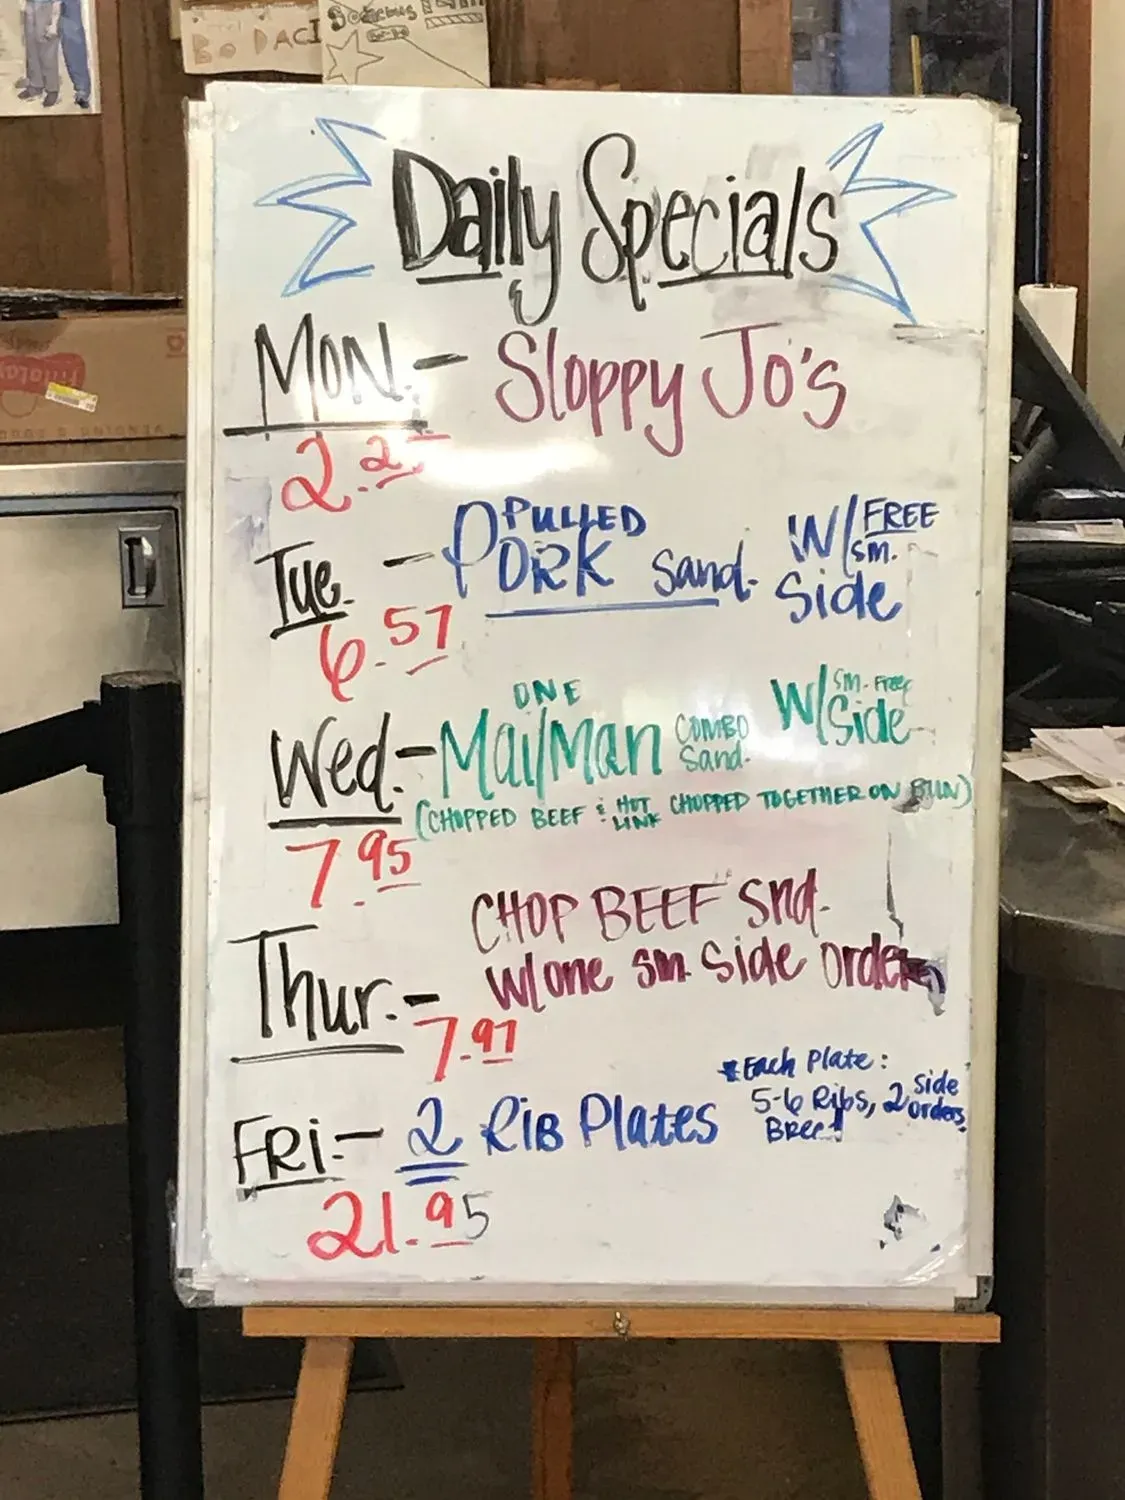 BO DACI
Daily Specials
MON.- Sloppy Jo's
Tue. - PULLED PORK Sand. W/ FREE sm. Side
6.57
Wed.- ONE Mail/Man COMBO Sand. W/ sm. FREE Side
(CHOPPED BEEF & HOT LINK CHOPPED TOGETHER ON BUN)
7.95
CHOP BEEF Snd.
Thur.- w/one sm. side order
7.97
FRi.- 2 RiB PLATES
*Each PLATE:
5-6 RiBs, 2 side orders,
21.95